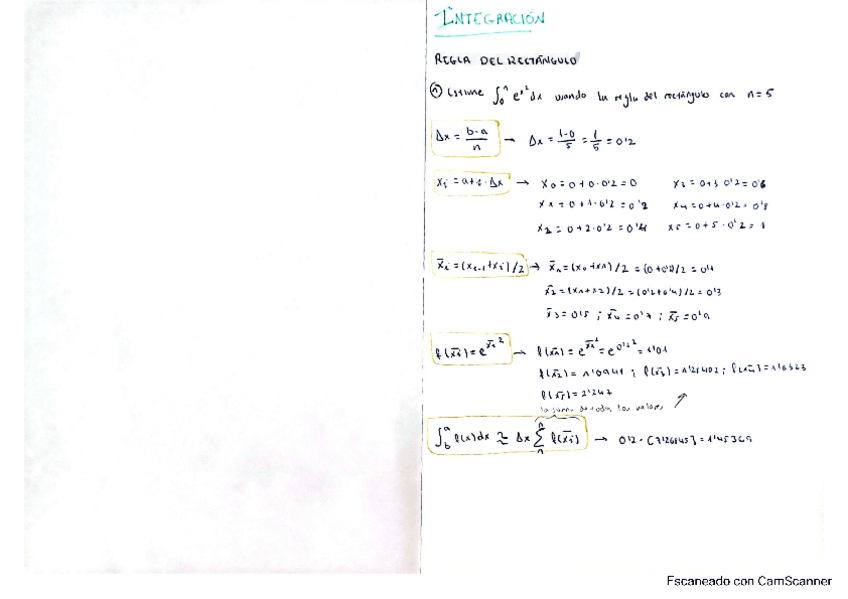 INTEGRACIÓN
REGLA DEL RECTÁNGULO
① Estime ∫₀¹ eˣ² dx usando la regla del rectángulo con n = 5
Δx = b-a/n → Δx = 1-0/5 = 1/5 = 0'2
xi = a+i·Δx → x0 = 0+0·0'2 = 0 x3 = 0+3·0'2 = 0'6
x1 = 0+1·0'2 = 0'2 x4 = 0+4·0'2 = 0'8
x2 = 0+2·0'2 = 0'4 x5 = 0+5·0'2 = 1
x̄i = (xi-1+xi)/2 → x̄1 = (x0+x1)/2 = (0+0'2)/2 = 0'1
x̄2 = (x1+x2)/2 = (0'2+0'4)/2 = 0'3
x̄3 = 0'5 ; x̄4 = 0'7 ; x̄5 = 0'9
f(x̄i) = e^x̄i² → f(x̄1) = e^x̄1² = e^0'1² = 1'01
f(x̄2) = 1'0941 ; f(x̄3) = 1'28402 ; f(x̄4) = 1'6323
f(x̄5) = 2'247
la suma de todos los valores
∫ f(x)dx ≃ Δx ∑ f(x̄i) → 0'2 · [7'26845] = 1'45369
Escaneado con CamScanner